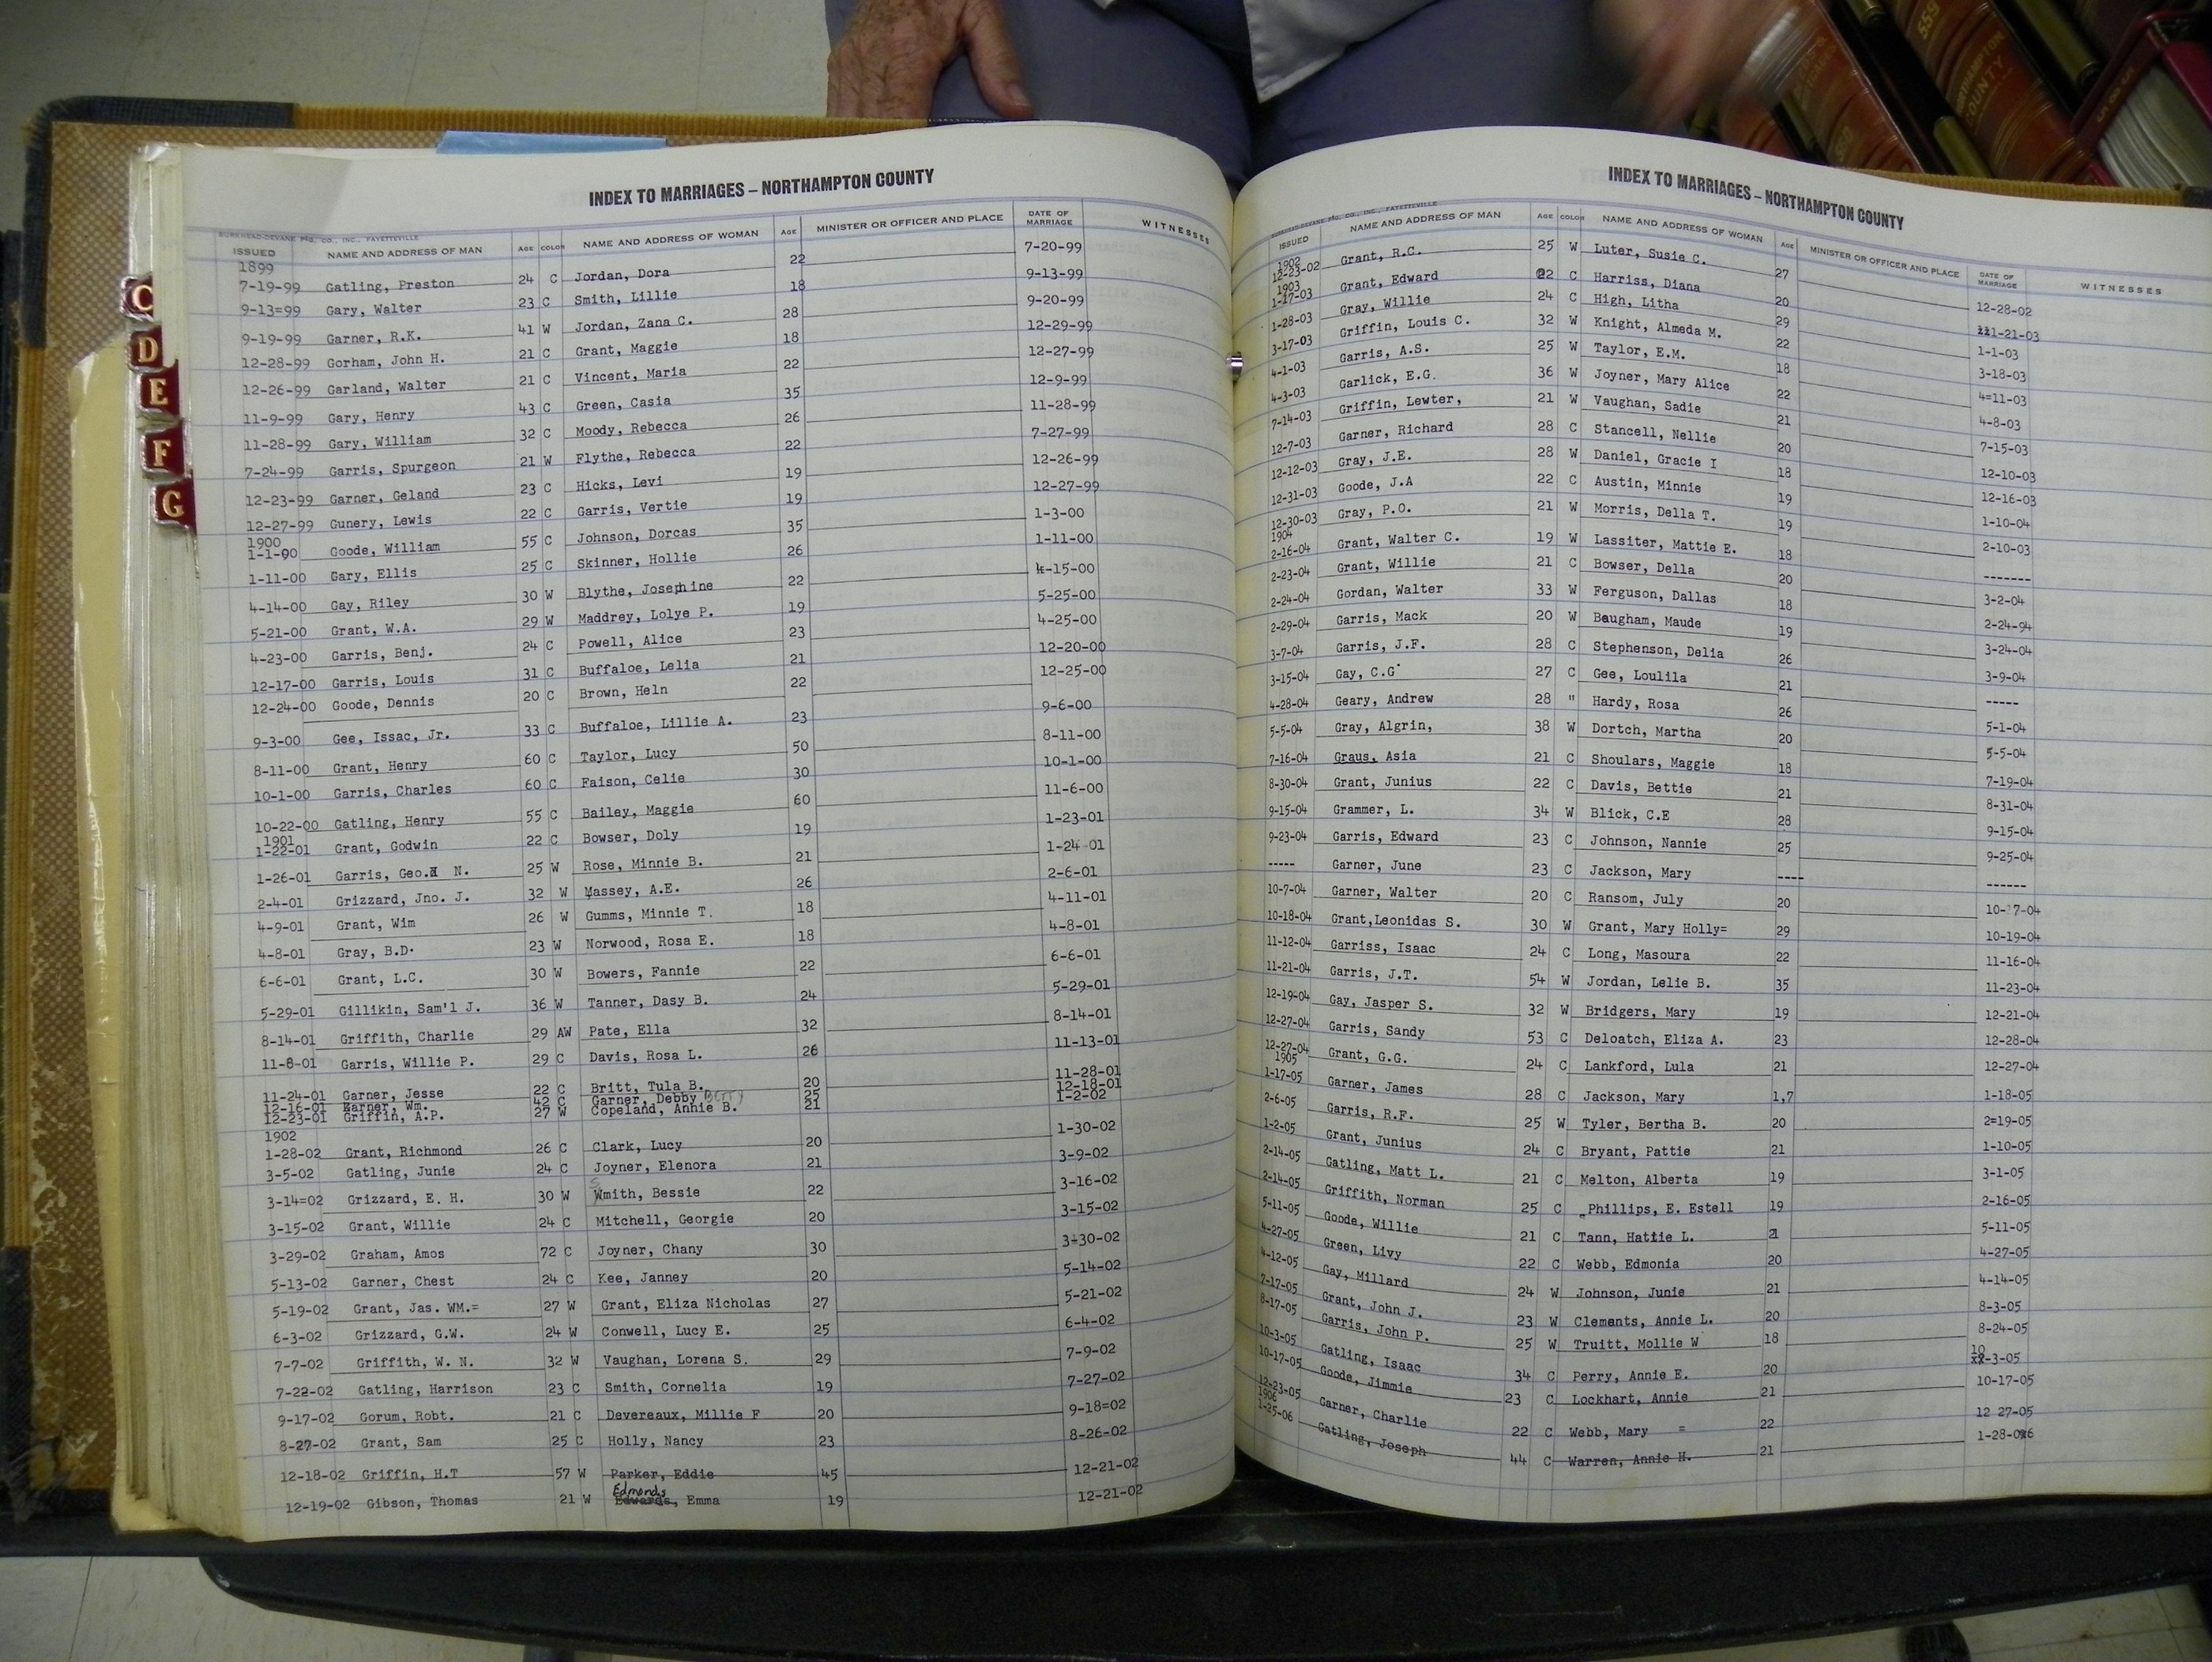 INDEX TO MARRIAGES – NORTHAMPTON COUNTY
BURKHEAD-DEVANE P'tg. CO., INC., FAYETTEVILLE
ISSUED NAME AND ADDRESS OF MAN AGE COLOR NAME AND ADDRESS OF WOMAN AGE MINISTER OR OFFICER AND PLACE DATE OF MARRIAGE WITNESSES
1899
7-19-99 Gatling, Preston 24 C Jordan, Dora 22 7-20-99
9-13=99 Gary, Walter 23 C Smith, Lillie 18 9-13-99
9-19-99 Garner, R.K. 41 W Jordan, Zana C. 28 9-20-99
12-28-99 Gorham, John H. 21 C Grant, Maggie 18 12-29-99
12-26-99 Garland, Walter 21 C Vincent, Maria 22 12-27-99
11-9-99 Gary, Henry 43 C Green, Casia 35 12-9-99
11-28-99 Gary, William 32 C Moody, Rebecca 26 11-28-99
7-24-99 Garris, Spurgeon 21 W Flythe, Rebecca 22 7-27-99
12-23-99 Garner, Geland 23 C Hicks, Levi 19 12-26-99
12-27-99 Gunery, Lewis 22 C Garris, Vertie 19 12-27-99
1900
1-1-00 Goode, William 55 C Johnson, Dorcas 35 1-3-00
1-11-00 Gary, Ellis 25 C Skinner, Hollie 26 1-11-00
4-14-00 Gay, Riley 30 W Blythe, Josephine 22 4-15-00
5-21-00 Grant, W.A. 29 W Maddrey, Lolye P. 19 5-25-00
4-23-00 Garris, Benj. 24 C Powell, Alice 23 4-25-00
12-17-00 Garris, Louis 31 C Buffaloe, Lelia 21 12-20-00
12-24-00 Goode, Dennis 20 C Brown, Heln 22 12-25-00
9-3-00 Gee, Issac, Jr. 33 C Buffaloe, Lillie A. 23 9-6-00
8-11-00 Grant, Henry 60 C Taylor, Lucy 50 8-11-00
10-1-00 Garris, Charles 60 C Faison, Celie 30 10-1-00
10-22-00 Gatling, Henry 55 C Bailey, Maggie 60 11-6-00
1901
1-22-01 Grant, Godwin 22 C Bowser, Doly 19 1-23-01
1-26-01 Garris, Geo. N. 25 W Rose, Minnie B. 21 1-24-01
2-4-01 Grizzard, Jno. J. 32 W Massey, A.E. 26 2-6-01
4-9-01 Grant, Wim 26 W Gumms, Minnie T. 18 4-11-01
4-8-01 Gray, B.D. 23 W Norwood, Rosa E. 18 4-8-01
6-6-01 Grant, L.C. 30 W Bowers, Fannie 22 6-6-01
5-29-01 Gillikin, Sam'l J. 36 W Tanner, Dasy B. 24 5-29-01
8-14-01 Griffith, Charlie 29 AW Pate, Ella 32 8-14-01
11-8-01 Garris, Willie P. 29 C Davis, Rosa L. 26 11-13-01
11-24-01 Garner, Jesse 22 C Britt, Tula B. 20 11-28-01
12-16-01 Garner, Wm. 42 C Garner, Debby Berry 25 12-18-01
12-23-01 Griffin, A.P. 27 W Copeland, Annie B. 21 1-2-02
1902
1-28-02 Grant, Richmond 26 C Clark, Lucy 20 1-30-02
3-5-02 Gatling, Junie 24 C Joyner, Elenora 21 3-9-02
3-14=02 Grizzard, E. H. 30 W Smith, Bessie 22 3-16-02
3-15-02 Grant, Willie 24 C Mitchell, Georgie 20 3-15-02
3-29-02 Graham, Amos 72 C Joyner, Chany 30 3-30-02
5-13-02 Garner, Chest 24 C Kee, Janney 20 5-14-02
5-19-02 Grant, Jas. WM.= 27 W Grant, Eliza Nicholas 27 5-21-02
6-3-02 Grizzard, G.W. 24 W Conwell, Lucy E. 25 6-4-02
7-7-02 Griffith, W. N. 32 W Vaughan, Lorena S. 29 7-9-02
7-22-02 Gatling, Harrison 23 C Smith, Cornelia 19 7-27-02
9-17-02 Gorum, Robt. 21 C Devereaux, Millie F 20 9-18=02
8-27-02 Grant, Sam 25 C Holly, Nancy 23 8-26-02
12-18-02 Griffin, H.T 57 W Parker, Eddie 45 12-21-02
12-19-02 Gibson, Thomas 21 W Edwards, Edmonds Emma 19 12-21-02
C
D
E
F
G
INDEX TO MARRIAGES – NORTHAMPTON COUNTY
BURKHEAD-DEVANE P'tg. CO., INC., FAYETTEVILLE
ISSUED NAME AND ADDRESS OF MAN AGE COLOR NAME AND ADDRESS OF WOMAN AGE MINISTER OR OFFICER AND PLACE DATE OF MARRIAGE WITNESSES
1902
12-23-02 Grant, R.C. 25 W Luter, Susie C. 27 12-28-02
1903
1-17-03 Grant, Edward 22 C Harriss, Diana 20 1-21-03
1-28-03 Gray, Willie 24 C High, Litha 29 1-1-03
3-17-03 Griffin, Louis C. 32 W Knight, Almeda M. 22 3-18-03
4-1-03 Garris, A.S. 25 W Taylor, E.M. 18 4=11-03
4-3-03 Garlick, E.G. 36 W Joyner, Mary Alice 22 4-8-03
7-14-03 Griffin, Lewter, 21 W Vaughan, Sadie 21 7-15-03
12-7-03 Garner, Richard 28 C Stancell, Nellie 20 12-10-03
12-12-03 Gray, J.E. 28 W Daniel, Gracie I 18 12-16-03
12-31-03 Goode, J.A 22 C Austin, Minnie 19 1-10-04
12-30-03 Gray, P.O. 21 W Morris, Della T. 19 2-10-03
1904
2-16-04 Grant, Walter C. 19 W Lassiter, Mattie E. 18 -------
2-23-04 Grant, Willie 21 C Bowser, Della 20 3-2-04
2-24-04 Gordan, Walter 33 W Ferguson, Dallas 18 2-24-94
2-29-04 Garris, Mack 20 W Baugham, Maude 19 3-24-04
3-7-04 Garris, J.F. 28 C Stephenson, Delia 26 3-9-04
3-15-04 Gay, C.G 27 C Gee, Loulila 21 -----
4-28-04 Geary, Andrew 28 " Hardy, Rosa 26 5-1-04
5-5-04 Gray, Algrin, 38 W Dortch, Martha 20 5-5-04
7-16-04 Graus, Asia 21 C Shoulars, Maggie 18 7-19-04
8-30-04 Grant, Junius 22 C Davis, Bettie 21 8-31-04
9-15-04 Grammer, L. 34 W Blick, C.E 28 9-15-04
9-23-04 Garris, Edward 23 C Johnson, Nannie 25 9-25-04
----- Garner, June 23 C Jackson, Mary ---- ------
10-7-04 Garner, Walter 20 C Ransom, July 20 10-17-04
10-18-04 Grant,Leonidas S. 30 W Grant, Mary Holly= 29 10-19-04
11-12-04 Garriss, Isaac 24 C Long, Masoura 22 11-16-04
11-21-04 Garris, J.T. 54 W Jordan, Lelie B. 35 11-23-04
12-19-04 Gay, Jasper S. 32 W Bridgers, Mary 19 12-21-04
12-27-04 Garris, Sandy 53 C Deloatch, Eliza A. 23 12-28-04
12-27-04 Grant, G.G. 24 C Lankford, Lula 21 12-27-04
1905
1-17-05 Garner, James 28 C Jackson, Mary 1,7 1-18-05
2-6-05 Garris, R.F. 25 W Tyler, Bertha B. 20 2=19-05
1-2-05 Grant, Junius 24 C Bryant, Pattie 21 1-10-05
2-14-05 Gatling, Matt L. 21 C Melton, Alberta 19 3-1-05
2-14-05 Griffith, Norman 25 C Phillips, E. Estell 19 2-16-05
5-11-05 Goode, Willie 21 C Tann, Hattie L. 21 5-11-05
4-27-05 Green, Livy 22 C Webb, Edmonia 20 4-27-05
4-12-05 Gay, Millard 24 W Johnson, Junie 21 4-14-05
7-17-05 Grant, John J. 23 W Clements, Annie L. 20 8-3-05
8-17-05 Garris, John P. 25 W Truitt, Mollie W 18 8-24-05
10-3-05 Gatling, Isaac 34 C Perry, Annie E. 20 10-3-05
10-17-05 Goode, Jimmie 23 C Lockhart, Annie 21 10-17-05
12-23-05 Garner, Charlie 22 C Webb, Mary = 22 12 27-05
1906
1-25-06 Gatling, Joseph 44 C Warren, Annie H. 21 1-28-06
559
NORTHAMPTON COUNTY